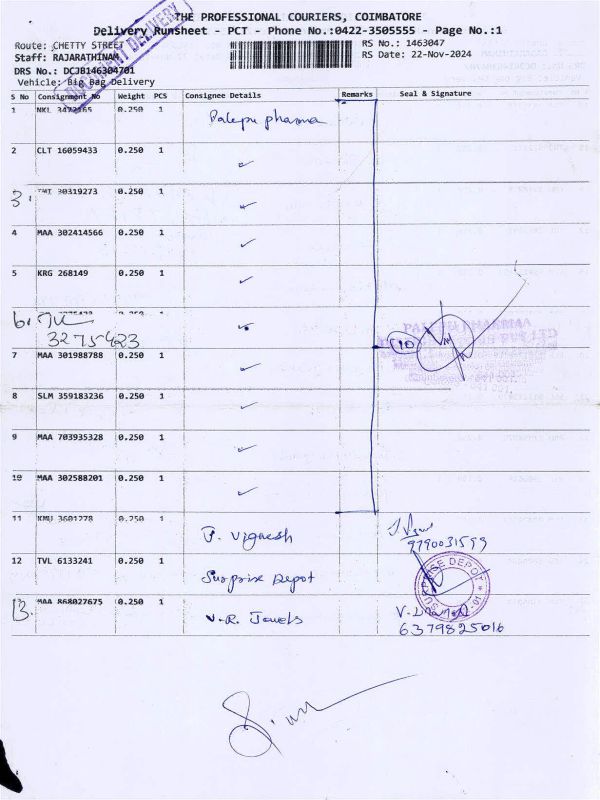 THE PROFESSIONAL COURIERS, COIMBATORE
Delivery Runsheet - PCT - Phone No.:0422-3505555 - Page No.:1
Route: CHETTY STREET
RS No.: 1463047
Staff: RAJARATHINAM
RS Date: 22-Nov-2024
DRS No.: DCJB146304701
Vehicle: Big Bag Delivery
DOCUMENT DELIVERY
S No Consignment No Weight PCS Consignee Details Remarks Seal & Signature
1 NKL 3472165 0.250 1 Palepu pharma
2 CLT 16059433 0.250 1 ✓
3. 30319273 0.250 1 ✓
4 MAA 302414566 0.250 1 ✓
5 KRG 268149 0.250 1 ✓
6. 3275423 0.250 ✓
PALEPU PHARMA
10
7 MAA 301988788 0.250 1 ✓
8 SLM 359183236 0.250 1 ✓
9 MAA 703935328 0.250 1 ✓
10 MAA 302588201 0.250 1 ✓
11 KMU 3601278 0.250 1 P. Vignesh
9790031599
12 TVL 6133241 0.250 1 Surprise Depot
SURPRISE DEPOT
13. MAA 868027675 0.250 1 V.R. Jewels
6379825016